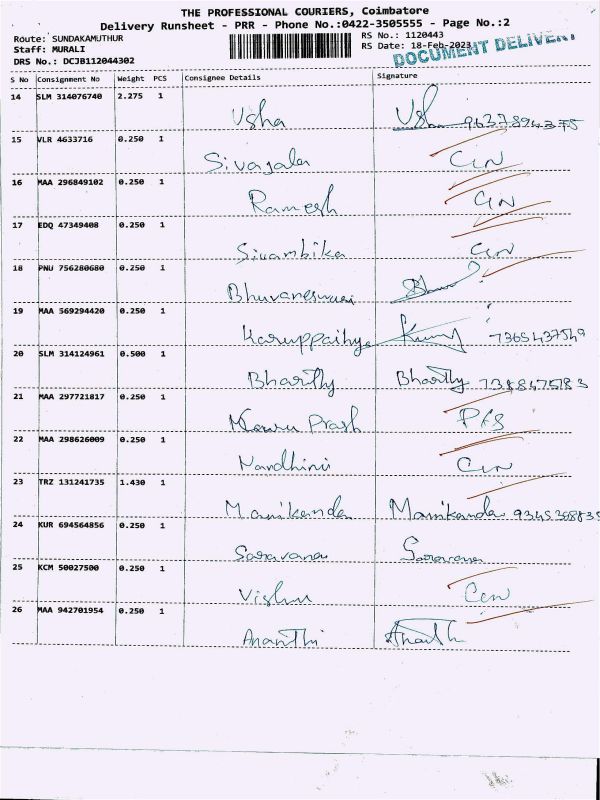 THE PROFESSIONAL COURIERS, Coimbatore
Delivery Runsheet - PRR - Phone No.:0422-3505555 - Page No.:2
Route: SUNDAKAMUTHUR
RS No.: 1120443
Staff: MURALI
RS Date: 18-Feb-2023
DOCUMENT DELIVERY
DRS No.: DCJB112044302
S No Consignment No Weight PCS Consignee Details Signature
14 SLM 314076740 2.275 1 Usha Usha
15 VLR 4633716 0.250 1 Sivagala
16 MAA 296849102 0.250 1 Ramesh
17 EDQ 47349408 0.250 1 Sivambika
18 PNU 756280680 0.250 1 Bhuvaneswari
19 MAA 569294420 0.250 1 Karuppaihya 7365437549
20 SLM 314124961 0.500 1 Bharthy Bharthy 7388475783
21 MAA 297721817 0.250 1 Prash
22 MAA 298626009 0.250 1 Nandhini
23 TRZ 131241735 1.430 1 Manikanda Manikanda
24 KUR 694564856 0.250 1 Saravana Saravana
25 KCM 50027500 0.250 1 Vishnu
26 MAA 942701954 0.250 1 Ananthi